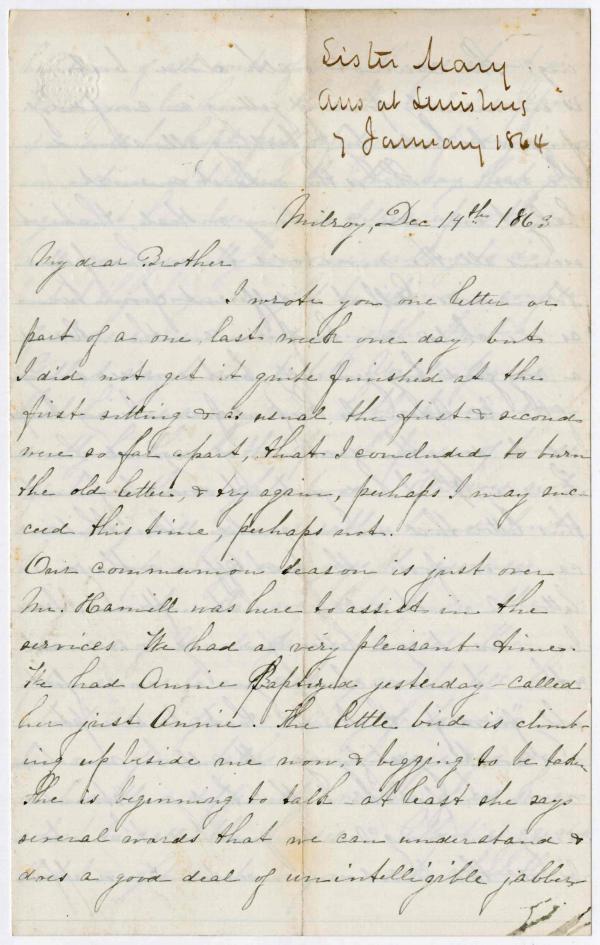 Sister Mary
Ans at Lewisburg
7 January 1864
Milroy, Dec 14th 1863
My dear Brother
I wrote you one letter or
part of a one, last week one day but
I did not get it quite finished at the
first sitting & as usual the first & second
were so far apart, that I concluded to burn
the old letter, & try again, perhaps I may suc-
ceed this time, perhaps not.
Our communion season is just over
Mr. Hamill was here to assist in the
services. We had a very pleasant time.
We had Annie Baptized yesterday - called
her just Annie. The little bird is climb-
ing up beside me now, & begging to be taken
She is beginning to talk - at least she says
several words that we can understand &
does a good deal of unintelligible jabber